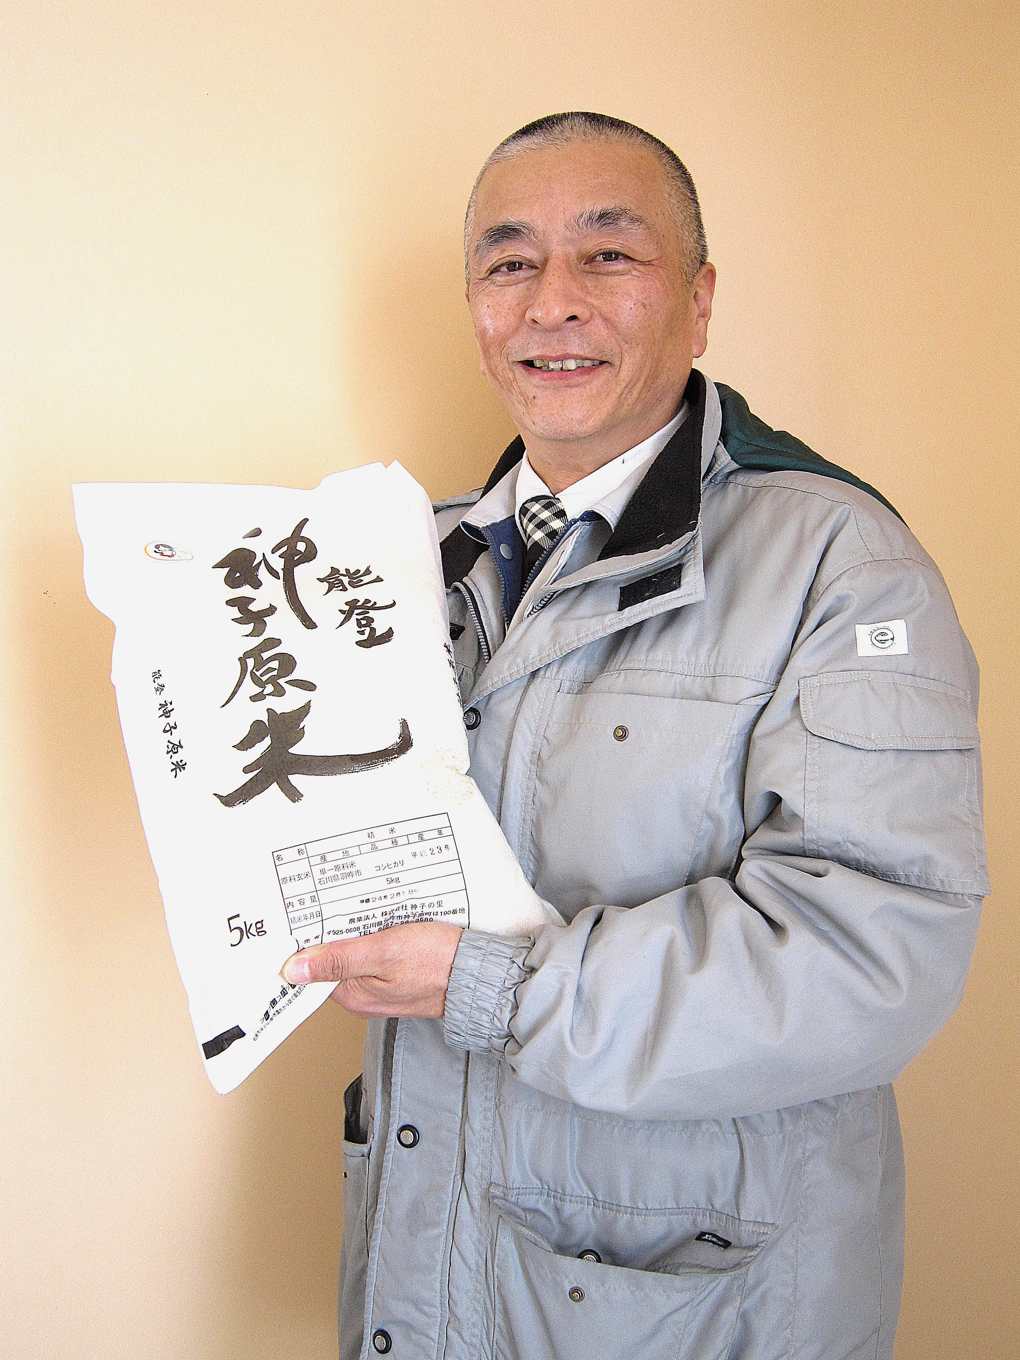 能登
神子原米
能登 神子原米
精米
名称
産地 品種 産年
原料玄米
単一原料米
石川県羽咋市 コシヒカリ 平成23年
内容量 5kg
精米年月日
農業法人 株式会社 神子の里
〒925-0608 石川県羽咋市神子原町は190番地
5kg